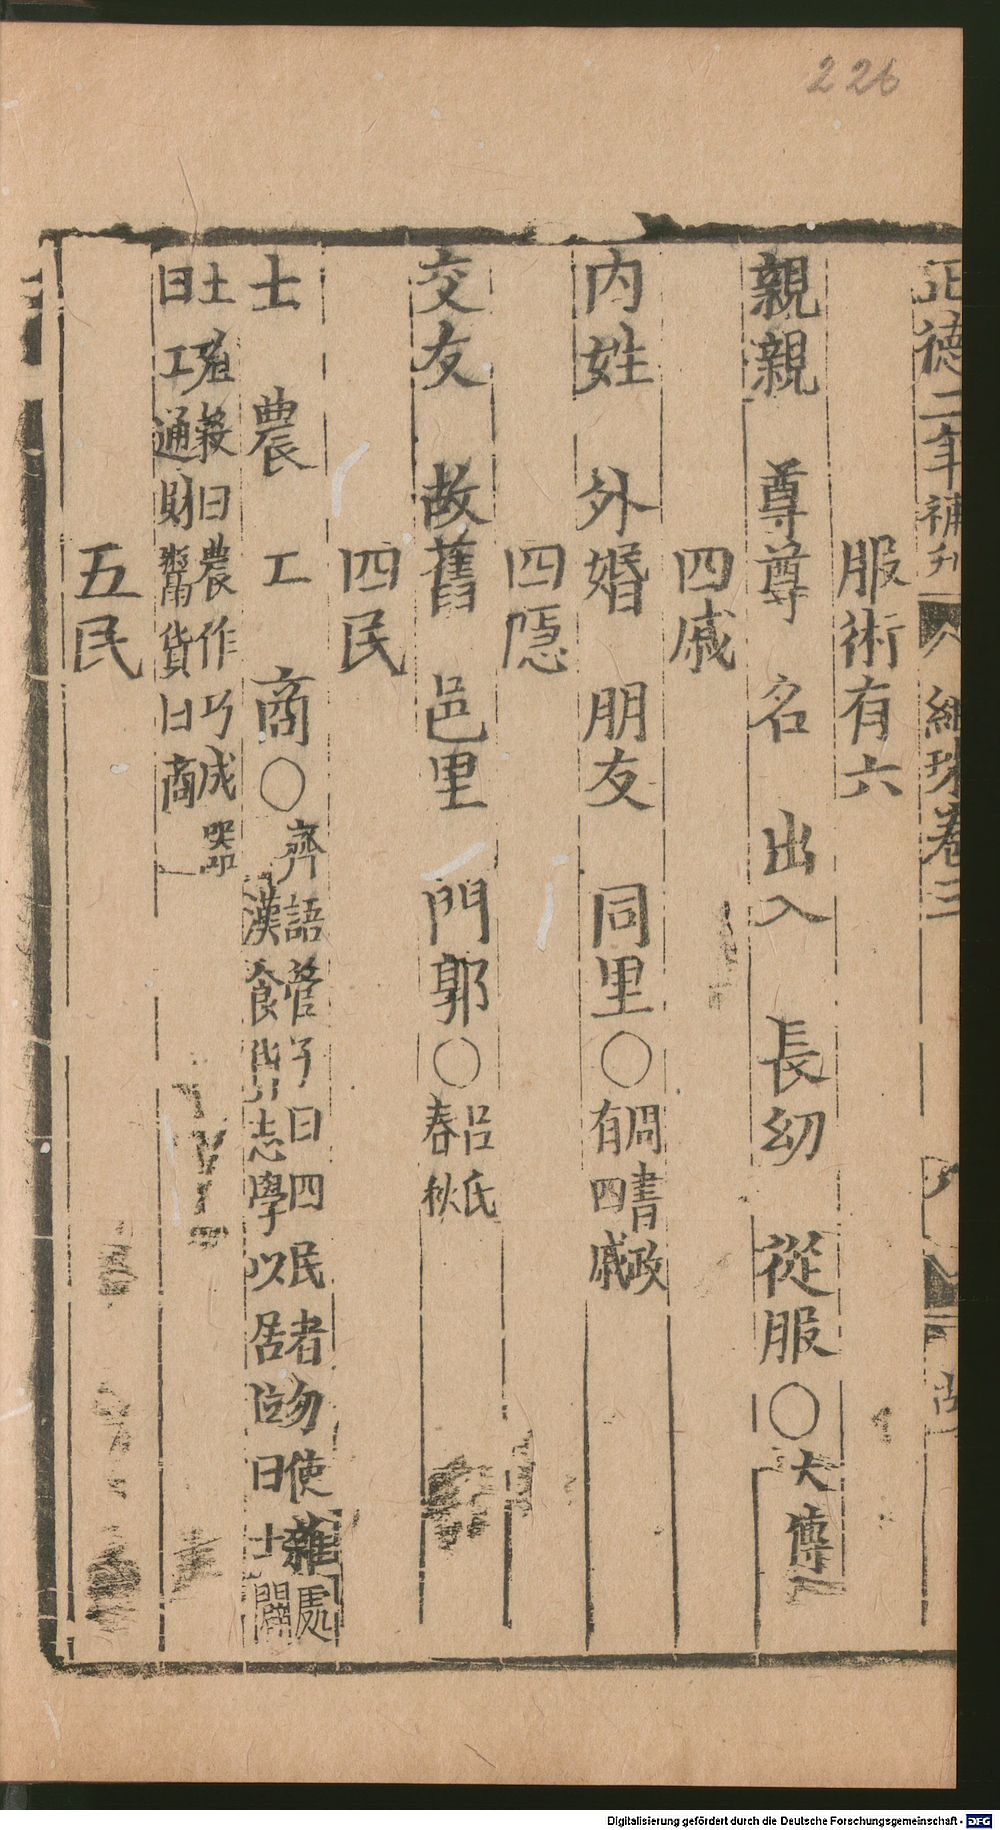 226
正德二年補刋
紺珠卷三
服術有六
親親　尊尊　名　出入　長幼　從服〇大傳
四戚
內姓　外婚　朋友　同里〇周書政
有四戚
四隱
交友　故舊　邑里　門郭〇呂氏
春秋
四民
士　農　工　商〇齊語管子曰四民者勿使雜處
漢食貨志學以居位曰士闢
土殖穀曰農作巧成器
曰工通財鬻貨曰商
五民
Digitalisierung gefördert durch die Deutsche Forschungsgemeinschaft - DFG